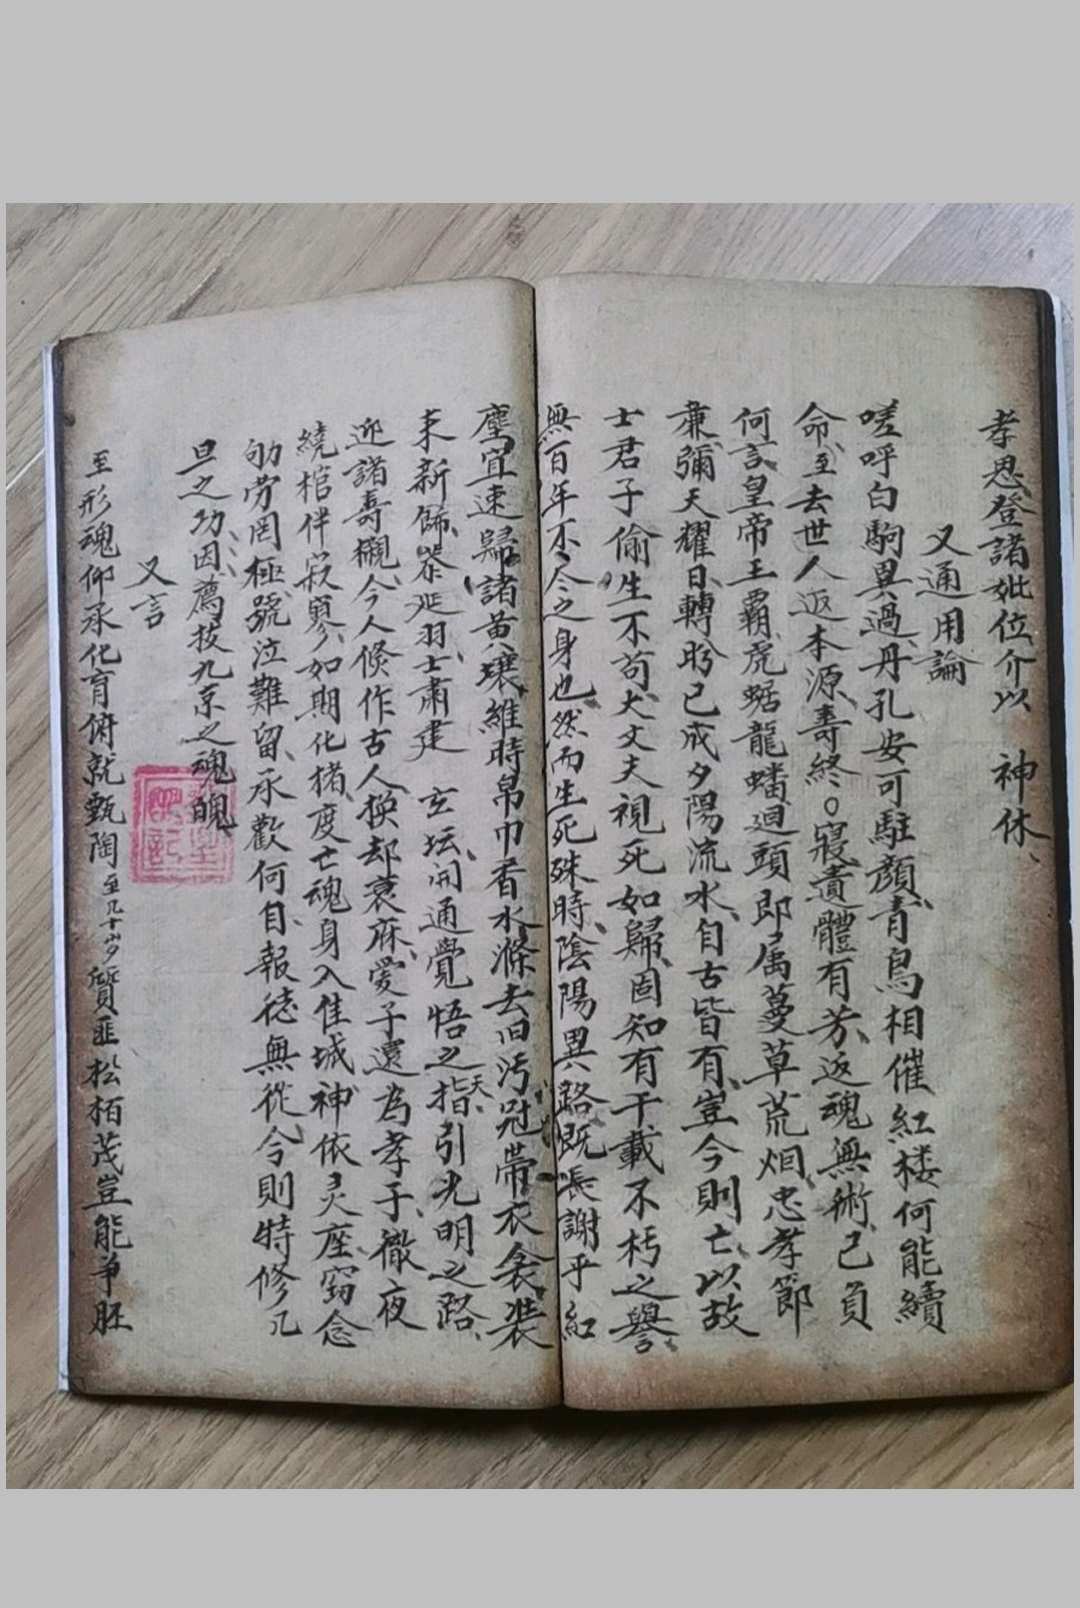 孝思登諸妣位介以　神休、
又通用論
嗟呼白駒異過、丹孔安可駐顏、青鳥相催紅楼何能續
命、至去世人返本源、壽終○寢遺體有芳、返魂無術、己負
何言、皇帝王覇、虎踞龍蟠廻頭即属蔓草荒烟、忠孝節
兼、彌天耀日、轉盻已成夕陽流水、自古皆有、豈今則亡、以故
士君子偷生不苟、大丈夫視死如歸、固知有千載不朽之譽
無百年不、今之身也、然而生死殊時、陰陽異路、既長謝乎紅
塵、宜速歸諸黄壤、維時帛巾香水滌去旧污、冠帶衣衾裝
来新飾、恭延羽士、肅建　玄坛、開通覺悟之天、指引光明之路、
迎諸壽櫬、今人倏作古人、换却衰麻、愛子還為孝子、徹夜
繞棺伴寂寥、如期化楮度亡魂、身入佳城、神依灵座、窃念
劬劳罔極、號泣難留、承歡何自、報徳無從、今則特修几
旦之功、因薦拔九京之魂魄
又言
至形魂仰承化育俯就甄陶至几十岁質匪松栢茂豈能争胚